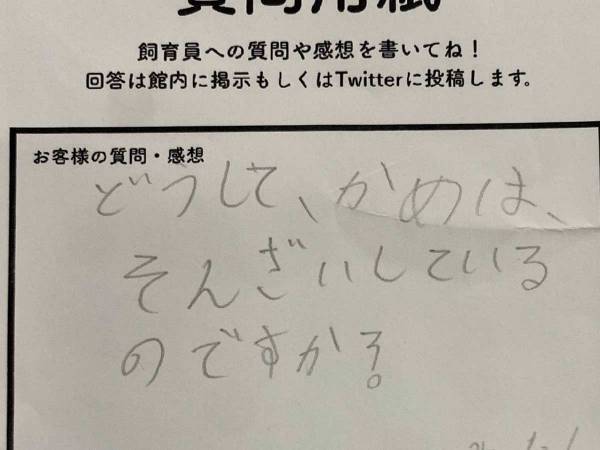 質問用紙
飼育員への質問や感想を書いてね！
回答は館内に掲示もしくはTwitterに投稿します。
お客様の質問・感想
どうして、かめは、
そんざいしている
のですか？